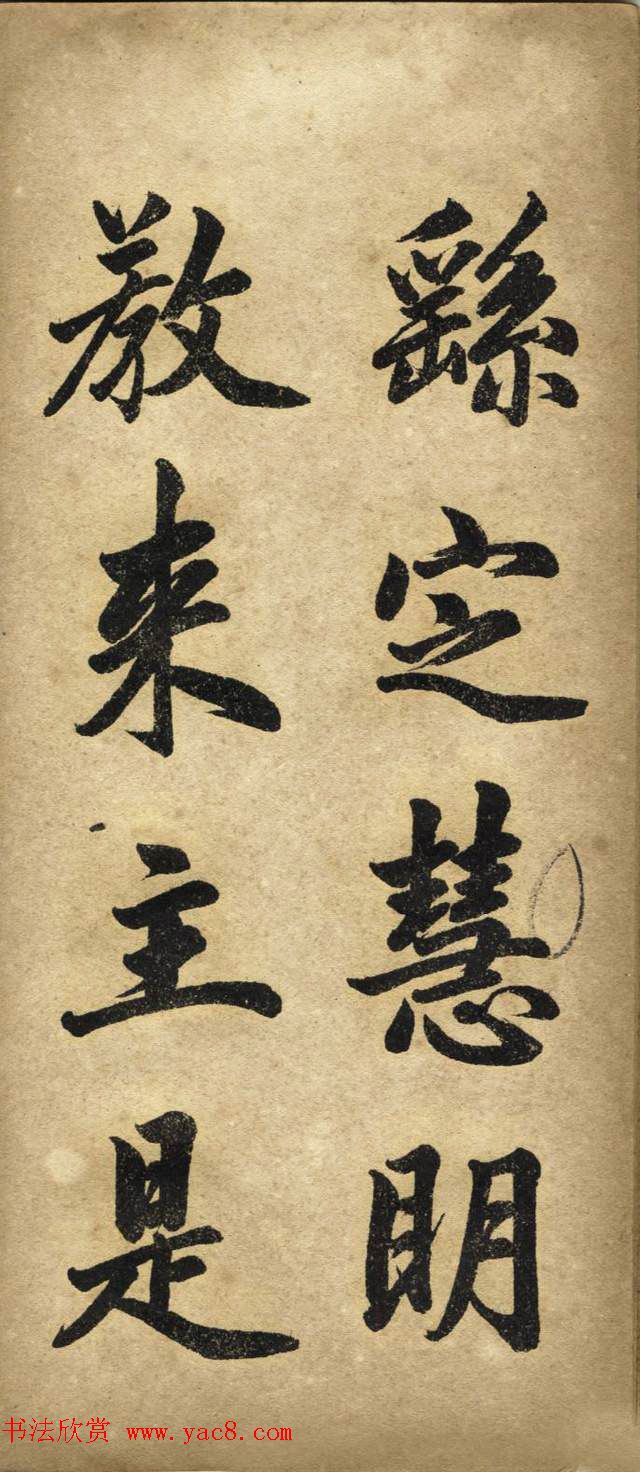 繇定慧明
教来主是
书法欣赏 www.yac8.com